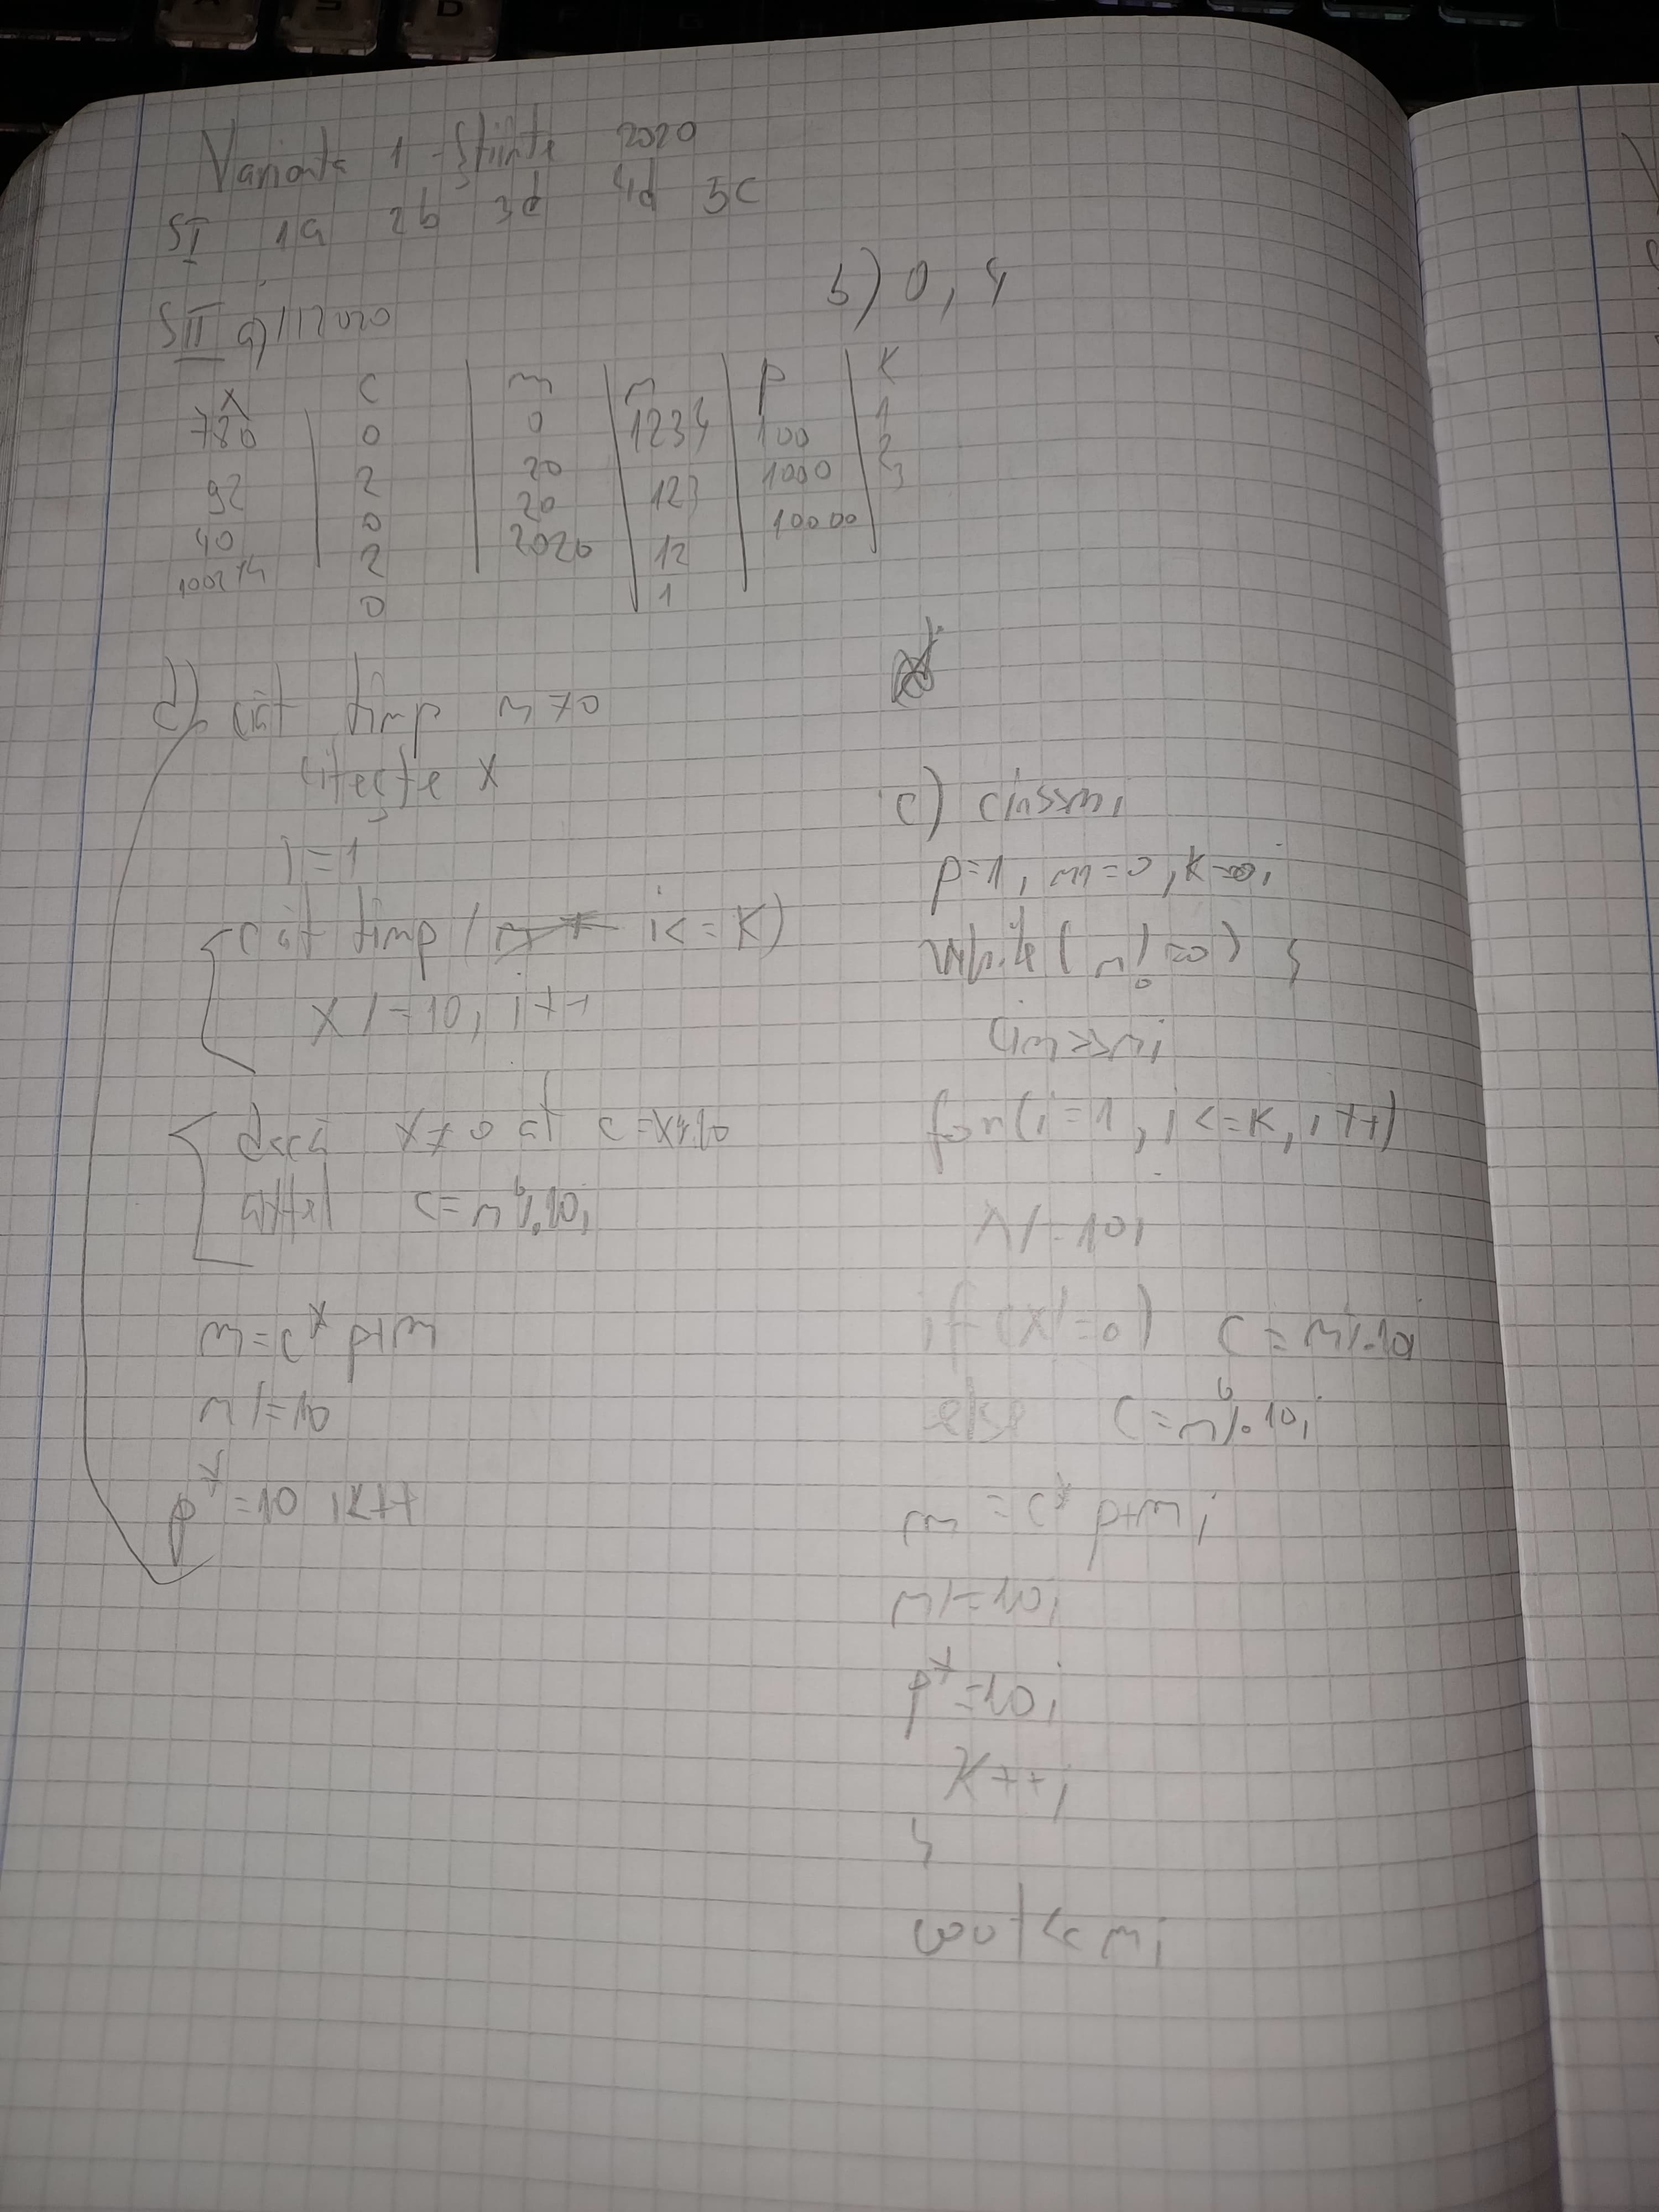 Varianta 1 - științe 2020
SI 1a 2b 3d 4d 5c
b) 0, 4
SII a) 2020
x c m n p K
780 0 0 1234 100 1
92 2 20 123 1000 2
40 0 20 12 10000 3
2 2020 1
0
d) cât timp n≠0
citește x
i=1
cât timp ( i<=K)
x/=10, i++
dacă x≠0 at c=x%10
altfel c=n%10;
m=c*p+m
n/=10
p*=10 ;K++
c) cin>>n;
p=1, m=0, K=0;
while(n!=0) {
cin>>n;
for(i=1, i<=K, i++)
x/=10;
if(x!=0) c=n%10;
else c=n%10;
m=c*p+m;
n/=10;
p*=10;
K++;
}
cout<<m;